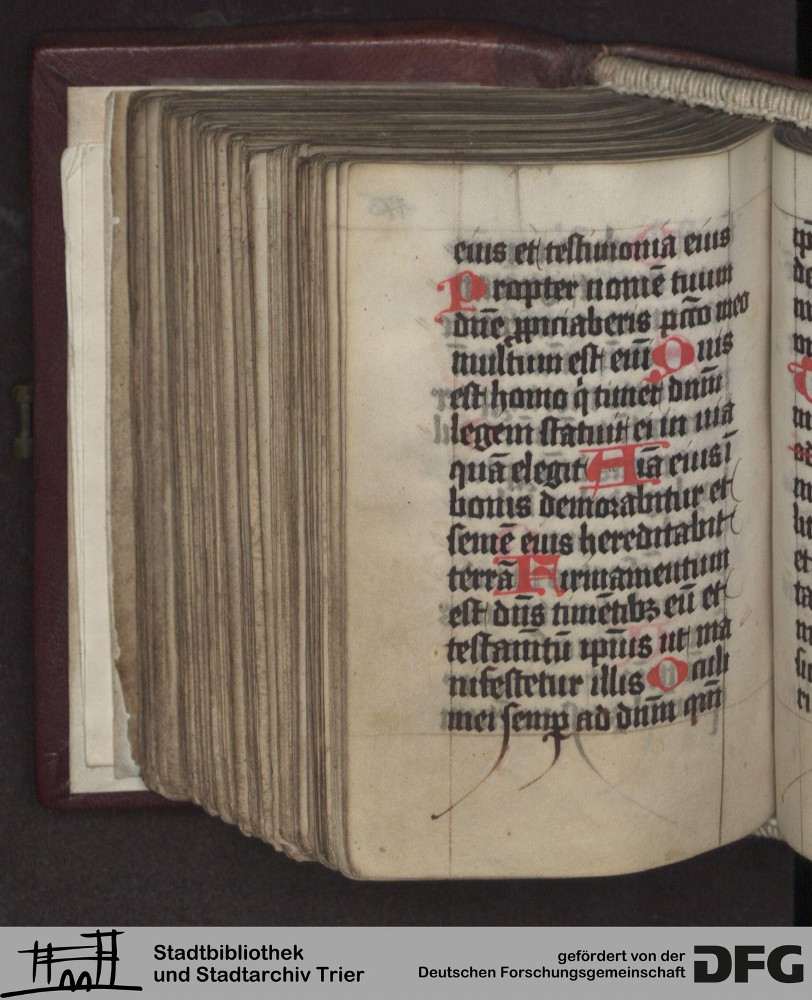 eius et testimonia eius
Propter nomē tuum
dn̄e ꝓpiciaberis pctō meo
multum est eni Quis
est homo q̇ timet dnm̄
legem statuit ei in uia
quā elegit Aīa eius ī
bonis demorabitur et
semē eius hereditabit
terrā Firmamentum
est dn̄s timētibꝫ eū et
testamtū ipīus ut ma
nifestetur illis Oculi
mei semꝑ ad dnm̄ qm̄
Stadtbibliothek
und Stadtarchiv Trier
gefördert von der
Deutschen Forschungsgemeinschaft
DFG